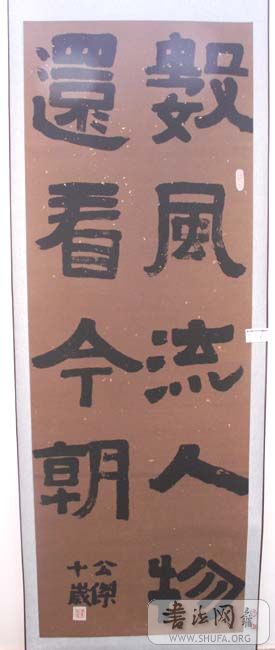 數風流人物
還看今朝
公傑
十歲
书法网
WWW.SHUFA.ORG